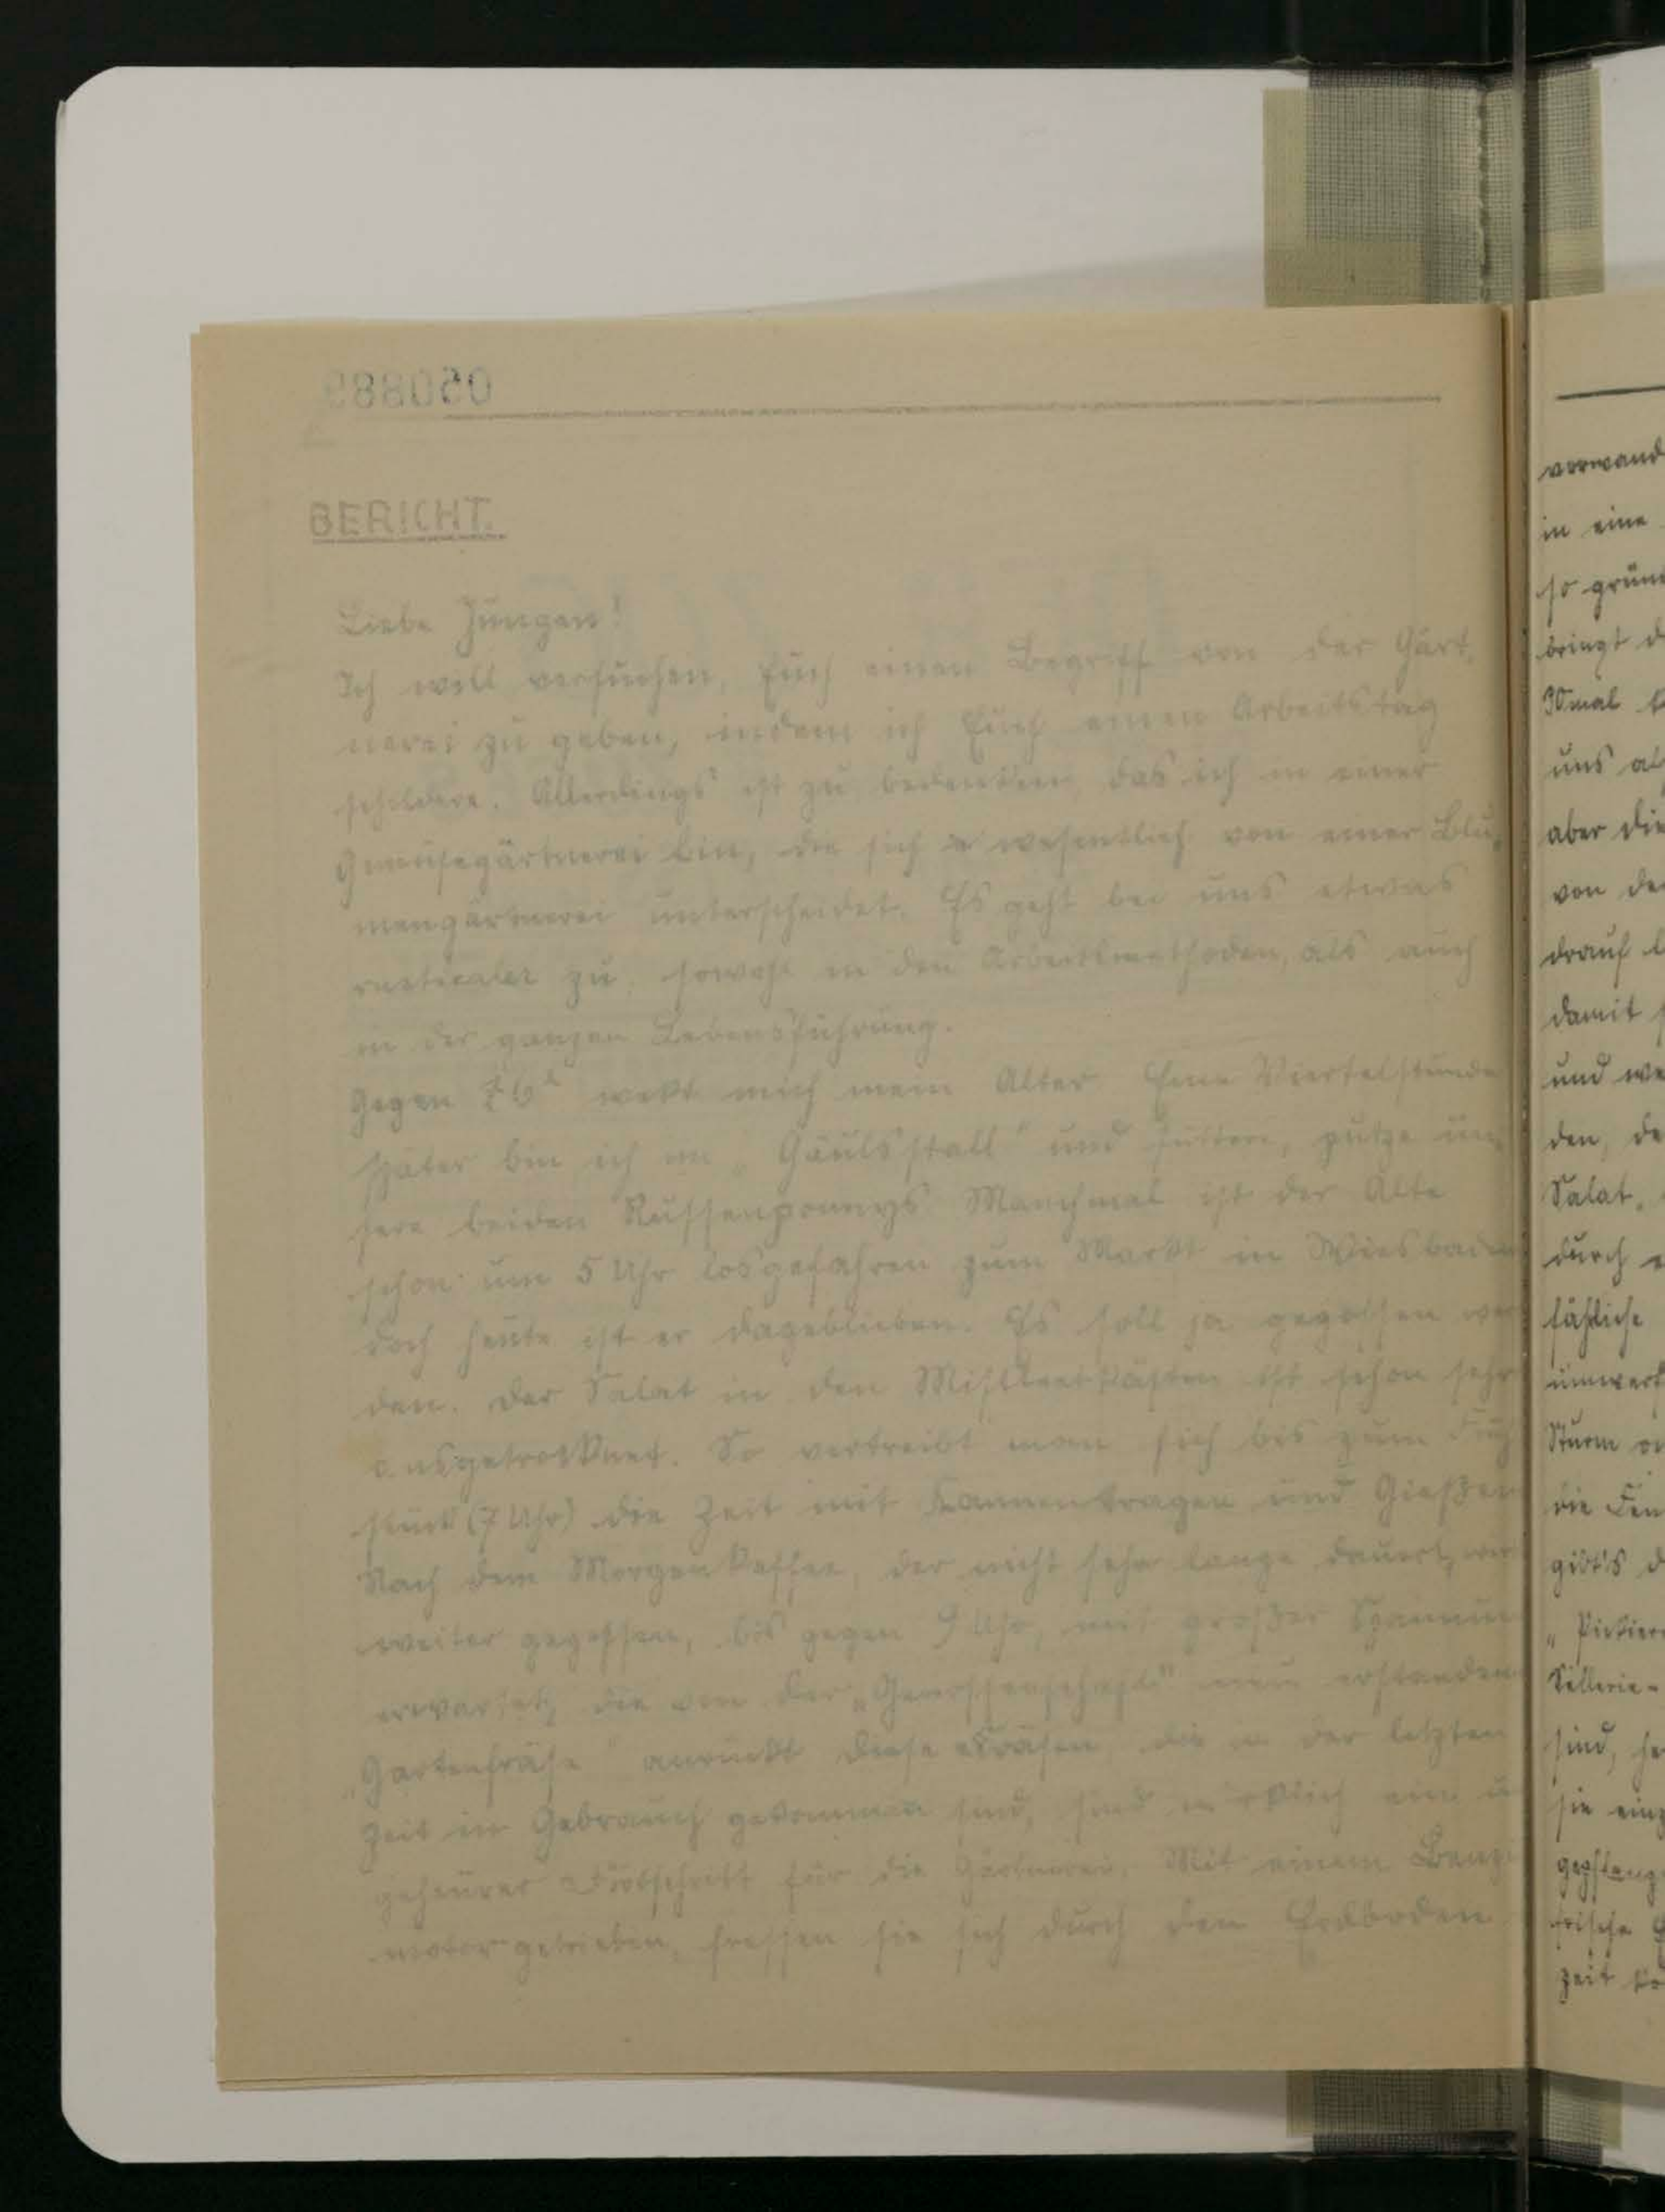 050889
BERICHT.
Liebe Jungen!
Ich will versuchen, Euch einen Begriff von der Gärt-
nerei zu geben, indem ich Euch einen Arbeitstag
schildere. Allerdings ist zu bedenken, das ich in einer
Gemüsegärtnerei bin, die sich wesentlich von einer Blu-
mengärtnerei unterscheidet. Es geht bei uns etwas
zu, sowohl in den Arbeitsmethoden, als auch
in der ganzen Lebensführung.
Gegen weckt mich mein Alter. Eine Viertelstunde
später bin ich im „Gäulsstall" und füttere, putze un-
sere beiden Russenponnys. Manchmal ist der Alte
schon um 5 Uhr losgefahren zum Markt in Wiesbaden
doch heute ist er dageblieben. Es soll ja gegossen wer
den. Der Salat in den Mistbeetkästen ist schon sehr
ausgetrocknet. So vertreibt man sich bis zum Früh
stück (7 Uhr) die Zeit mit Kannentragen und Gießen
Nach dem Morgenkaffee, der nicht sehr lange dauert, wir
weiter gegossen, bis gegen 9 Uhr, mit großer Spannun
erwartet, die von der „Genossenschaft" neu erstanden
„Gartenfräse" anrückt. Diese Fräsen, die in der letzten
Zeit in Gebrauch gekommen sind, sind wirklich ein u
geheurer Fortschritt für die Gärtnerei. Mit einem Benzi
motor getrieben, fressen sie sich durch den Erdboden
vorwand
in eine
so grün
bringt d
uns al
aber die
von de
drauf l
damit
und we
den, de
Salat.
durch
Sturm
die Fen
gibt's d
„Pikier
Sellerie-
sind, he
sie ein
frische
Zeit